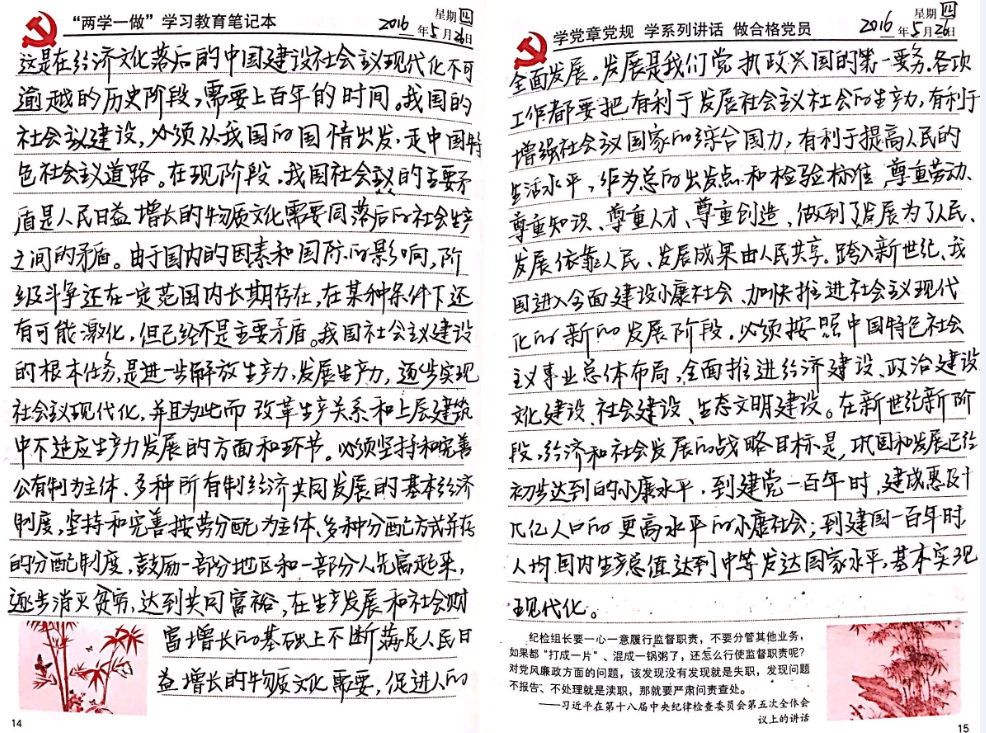 “两学一做”学习教育笔记本
2016年5月26日
星期四
这是在经济文化落后的中国建设社会主义现代化不可
逾越的历史阶段,需要上百年的时间。我国的
社会主义建设,必须从我国的国情出发,走中国特
色社会主义道路。在现阶段,我国社会的主要矛
盾是人民日益增长的物质文化需要同落后的社会生产
之间的矛盾。由于国内的因素和国际的影响,阶
级斗争还在一定范围内长期存在,在某种条件下还
有可能激化,但已经不是主要矛盾。我国社会主义建设
的根本任务,是进一步解放生产力,发展生产力,逐步实现
社会主义现代化,并且为此而改革生产关系和上层建筑
中不适应生产力发展的方面和环节。必须坚持和完善
公有制为主体、多种所有制经济共同发展的基本经济
制度,坚持和完善按劳分配为主体、多种分配方式并存
的分配制度,鼓励一部分地区和一部分人先富起来,
逐步消灭贫穷,达到共同富裕,在生产发展和社会财
富增长的基础上不断满足人民日
益增长的物质文化需要,促进人的
14
学党章党规 学系列讲话 做合格党员
2016年5月26日
星期四
全面发展。发展是我们党执政兴国的第一要务。各项
工作都要把有利于发展社会主义社会的生产力,有利于
增强社会主义国家的综合国力,有利于提高人民的
生活水平,作为总的出发点和检验标准,尊重劳动、
尊重知识、尊重人才、尊重创造,做到了发展为了人民、
发展依靠人民、发展成果由人民共享。跨入新世纪,我
国进入全面建设小康社会、加快推进社会主义现代
化的新的发展阶段。必须按照中国特色社会
主义事业总体布局,全面推进经济建设、政治建设、
文化建设、社会建设、生态文明建设。在新世纪新阶
段,经济和社会发展的战略目标是,巩固和发展已经
初步达到的小康水平,到建党一百年时,建成惠及十
几亿人口的更高水平的小康社会;到建国一百年时,
人均国内生产总值达到中等发达国家水平,基本实现
现代化。
纪检组长要一心一意履行监督职责,不要分管其他业务,
如果都“打成一片”、混成一锅粥了,还怎么行使监督职责呢?
对党风廉政方面的问题,该发现没有发现就是失职,发现问题
不报告、不处理就是渎职,那就要严肃问责查处。
——习近平在第十八届中央纪律检查委员会第五次全体会
议上的讲话
15